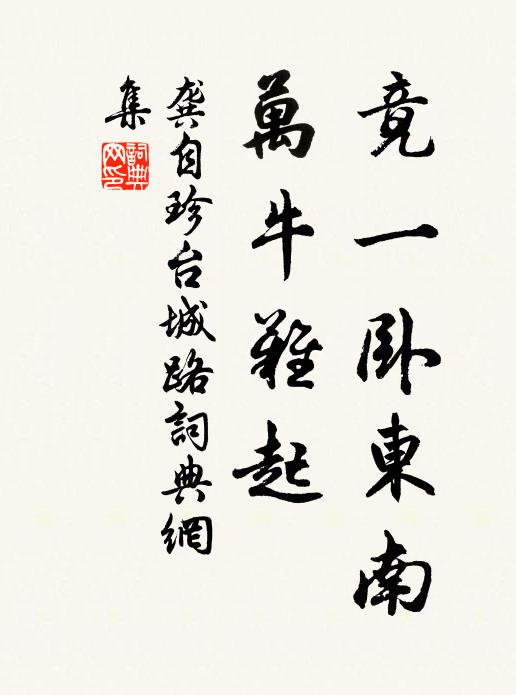 竟一卧東南
萬牛難起
龚自珍台城路詞典網
集
詞典网印